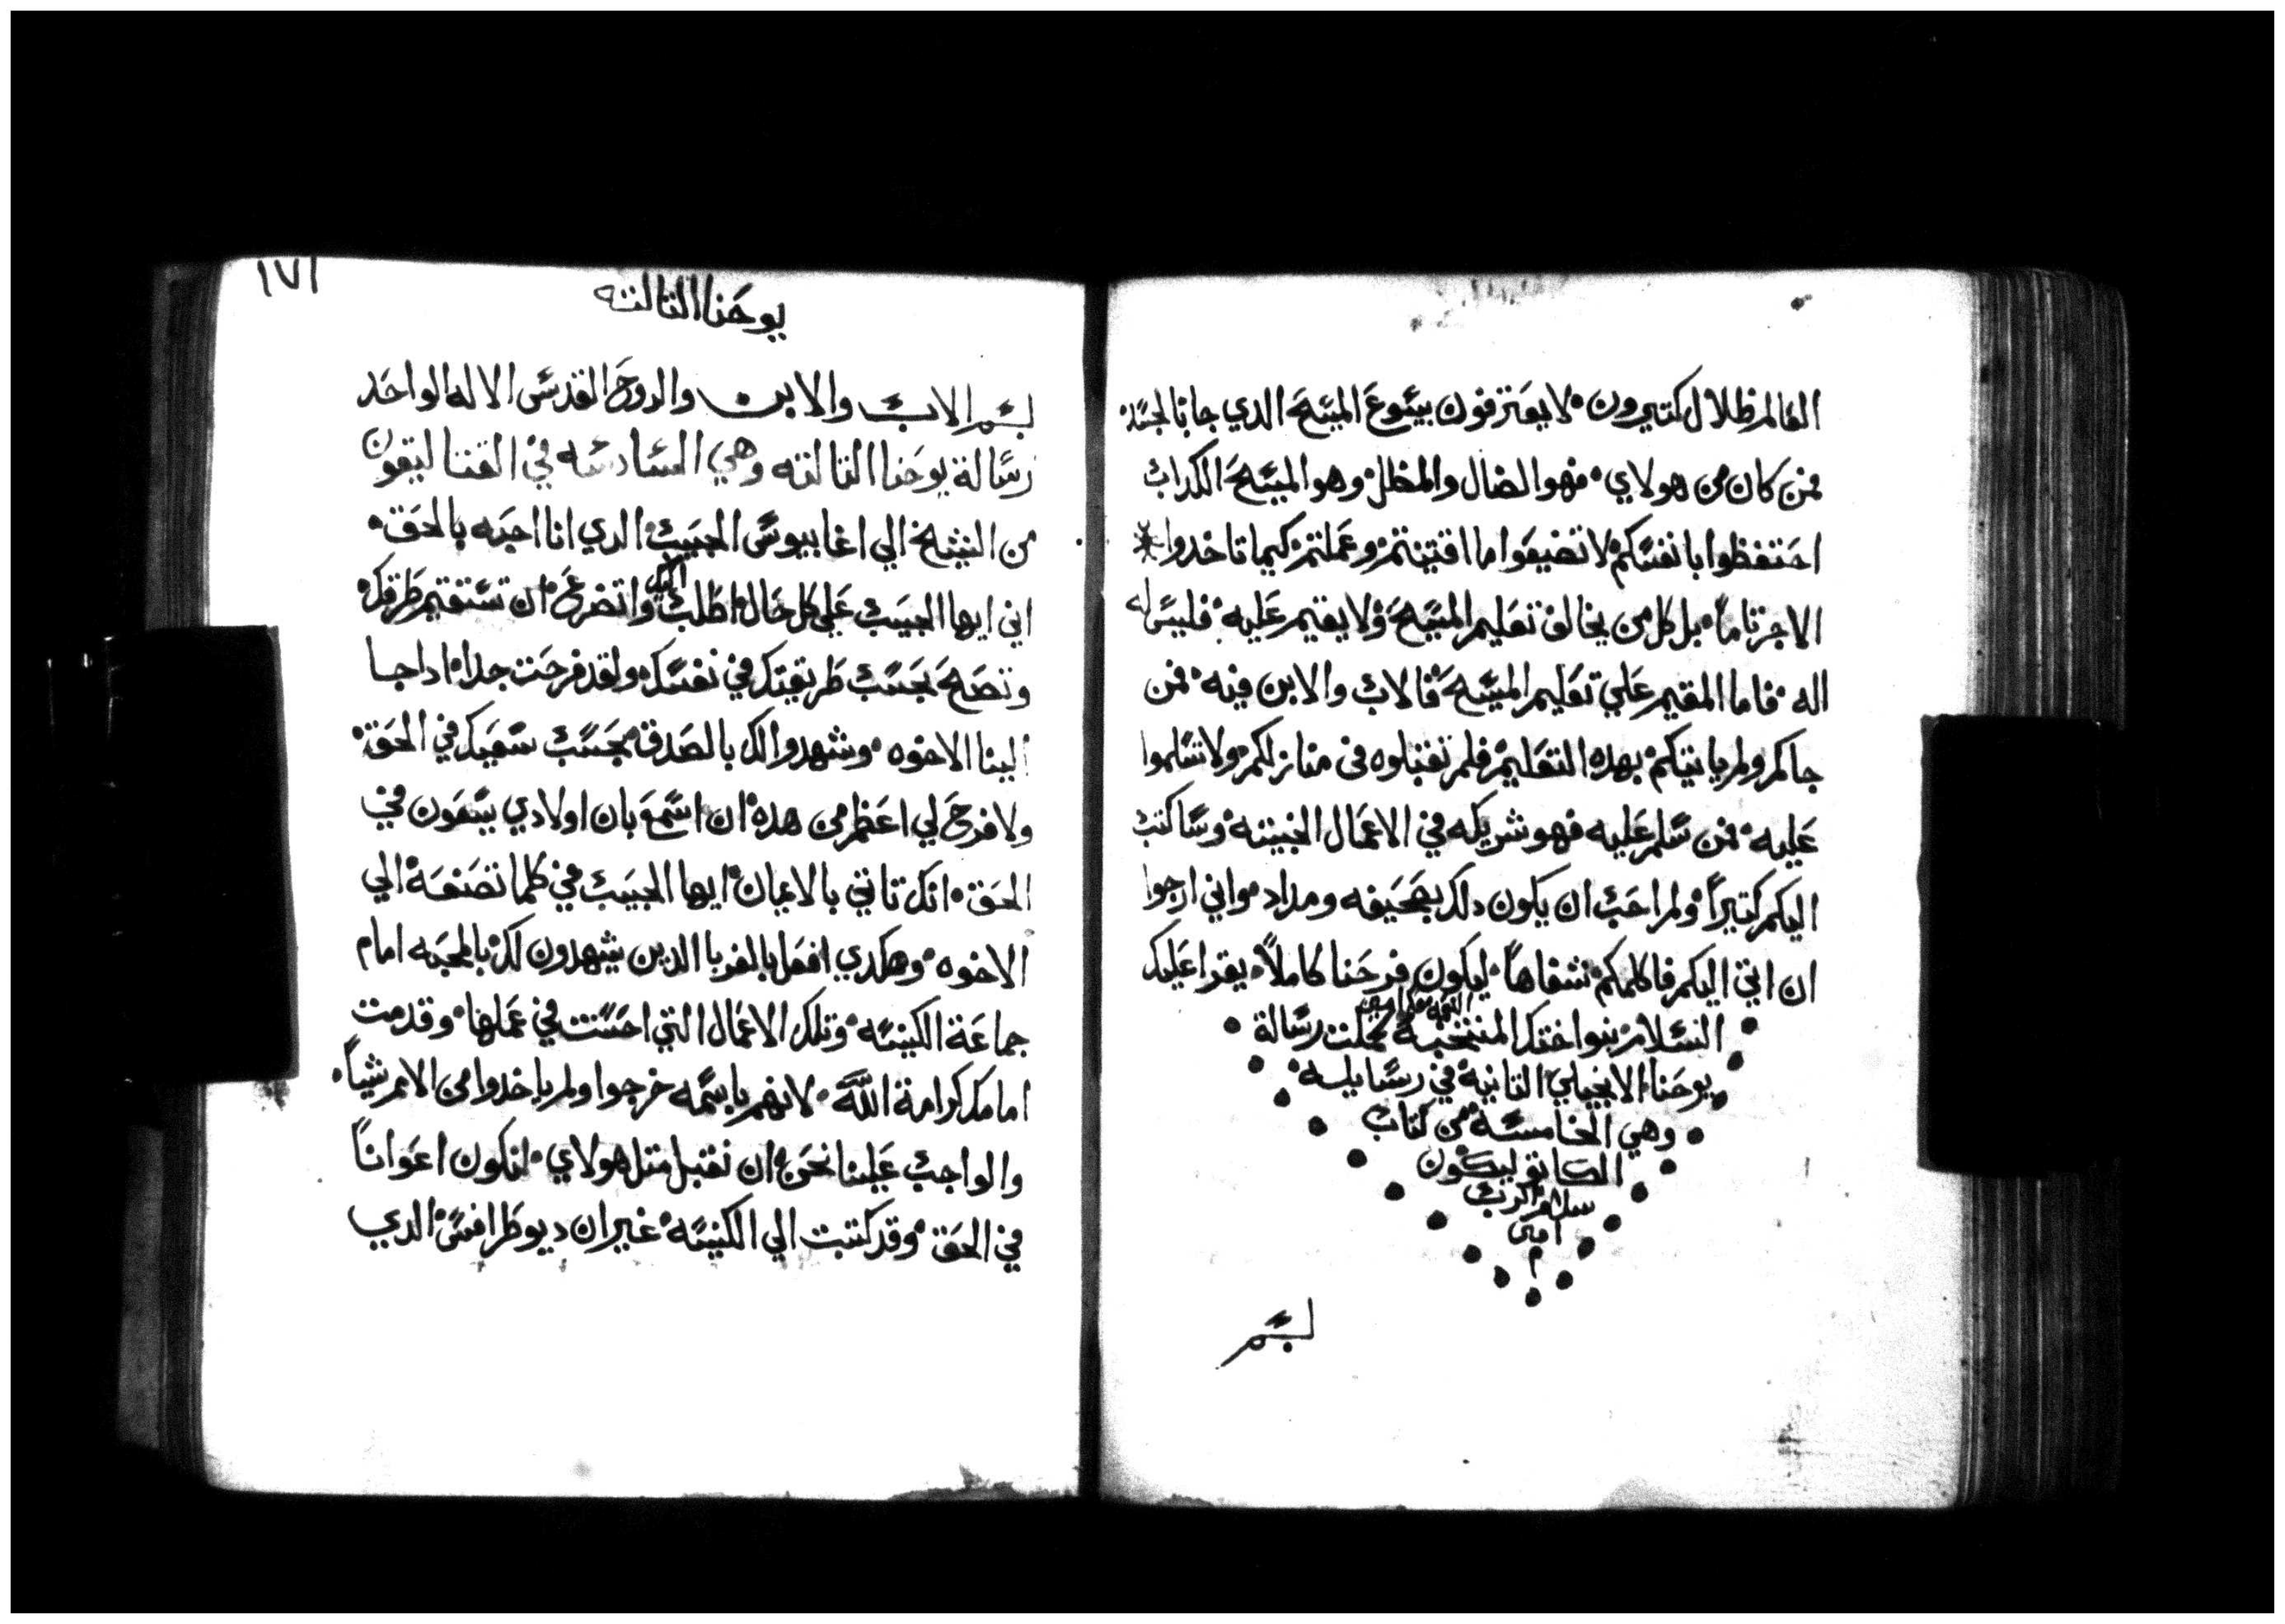 العالم ظلال كتيرون لا يعترفون بيسوع المسيح الدي جا بالجسد
فمن كان من هولاي فهو الضال والمظلل وهو المسيح الكداب
احتفظوا بانفسكم لا تضيعوا ما اقتنيتم وعملتم كيما تاخدوا
الاجر تاماً بل كل من يخالف تعليم المسيح ولا يقيم عليه فليس له
اله فاما المقيم علي تعليم المسيح فالاب والابن فيه فمن
جاكم ولم ياتيكم بهده التعليم فلم تقبلوه في منازلكم ولا تسلموا
عليه فمن سلم عليه فهو شريكه في الاعمال الخبيتة وساكتب
اليكم كتيراً ولم احب ان يكون دلك بصحيفه ومداد واني ارجوا
ان اتي اليكم فاكلمكم شفاهاً ليكون فرحنا كاملاً يقرا عليك
السلام بنوا اختك المنتخبة كملت رسالة
يوحنا الانجيلي التانية في رسايله
وهي الخامسة من كتاب
الكاتوليكون
بسلام من الرب
امين
م
بسم
١٧١
يوحنا التالته
بسم الاب والابن والروح القدس الاله الواحد
رسالة يوحنا التالته وهي السادسه في القتاليقون
من الشيخ الي اغابيوس الحبيب الدي انا احبه بالحق
اني ايها الحبيب علي كل حال اطلب اليك واتضرع ان تستقيم طرقك
وتصح بحسب طريقتك في نفسك ولقد فرحت جدا ادا جا
الينا الاخوه وشهدوا لك بالصدق بحسب سعيك في الحق
ولا فرح لي اعظم من هده ان اسمع بان اولادي يسعون في
الحق انك تاتي بالايمان ايها الحبيب في كلما تصنعة الي
الاخوه وهكدي افعل بالغربا الدين يشهدون لك بالمحبه امام
جماعة الكنيسه وتلك الاعمال التي احسنت في عملها وقدمت
امامك كرامة الله لانهم باسمه خرجوا ولم ياخدوا من الامم شياً
والواجب علينا نحن ان نقبل متل هولاي لنكون اعواناً
في الحق وقد كتبت الي الكنيسه غير ان ديوطرافس الدي